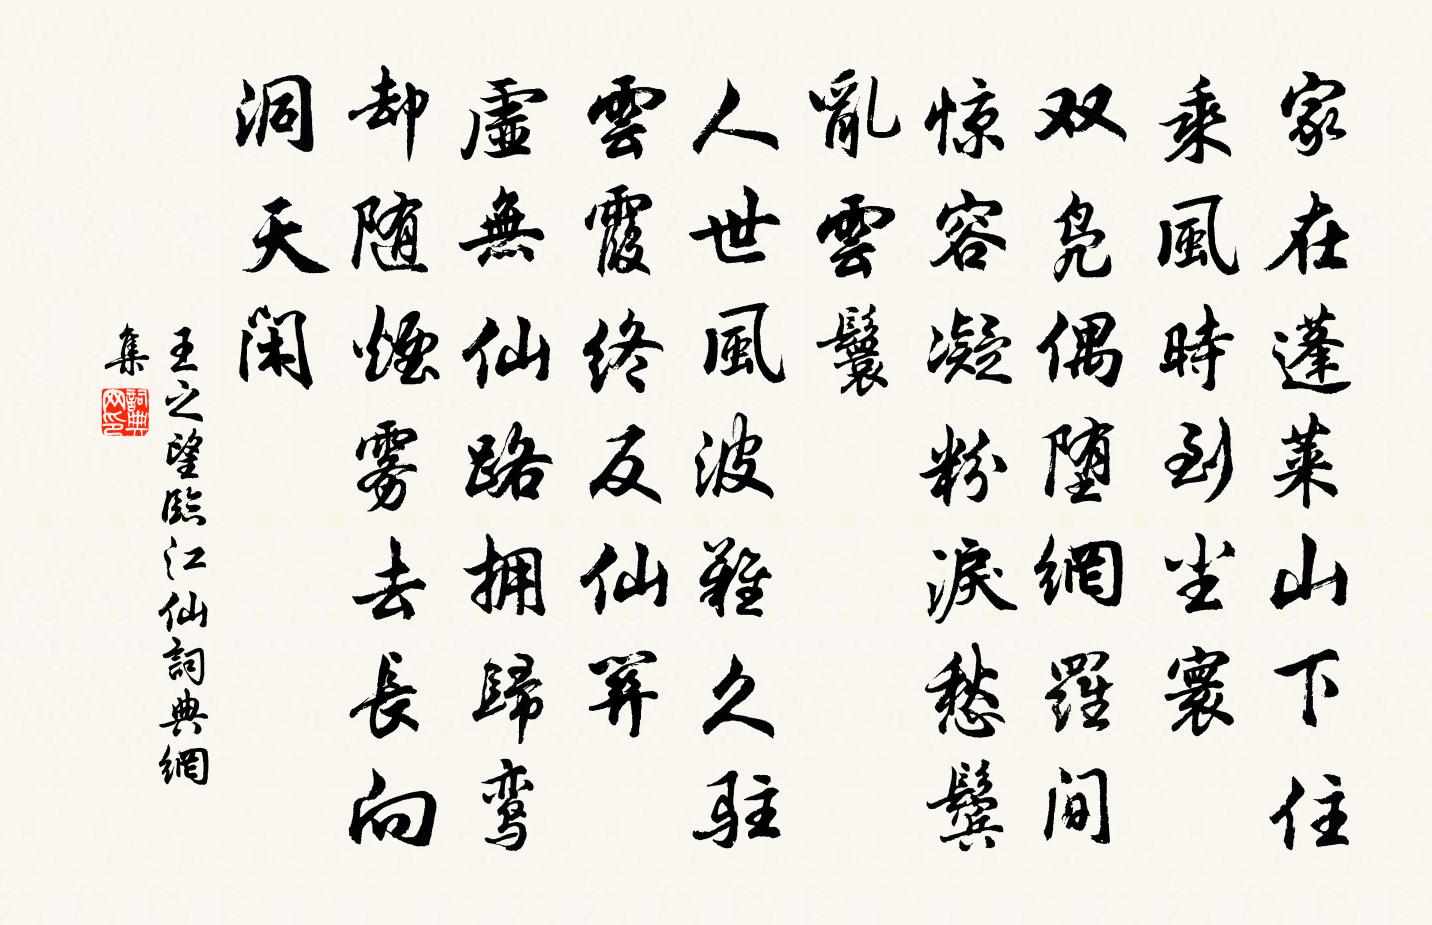 家在蓬莱山下住
乘風時到尘寰
双凫偶堕網羅間
惊容凝粉淚愁鬓
亂雲鬟
人世風波難久駐
雲霞终反仙关
虚無仙路拥歸鸾
却随煙雾去長向
洞天闲
王之望臨江仙詞典網
集
詞典
网印